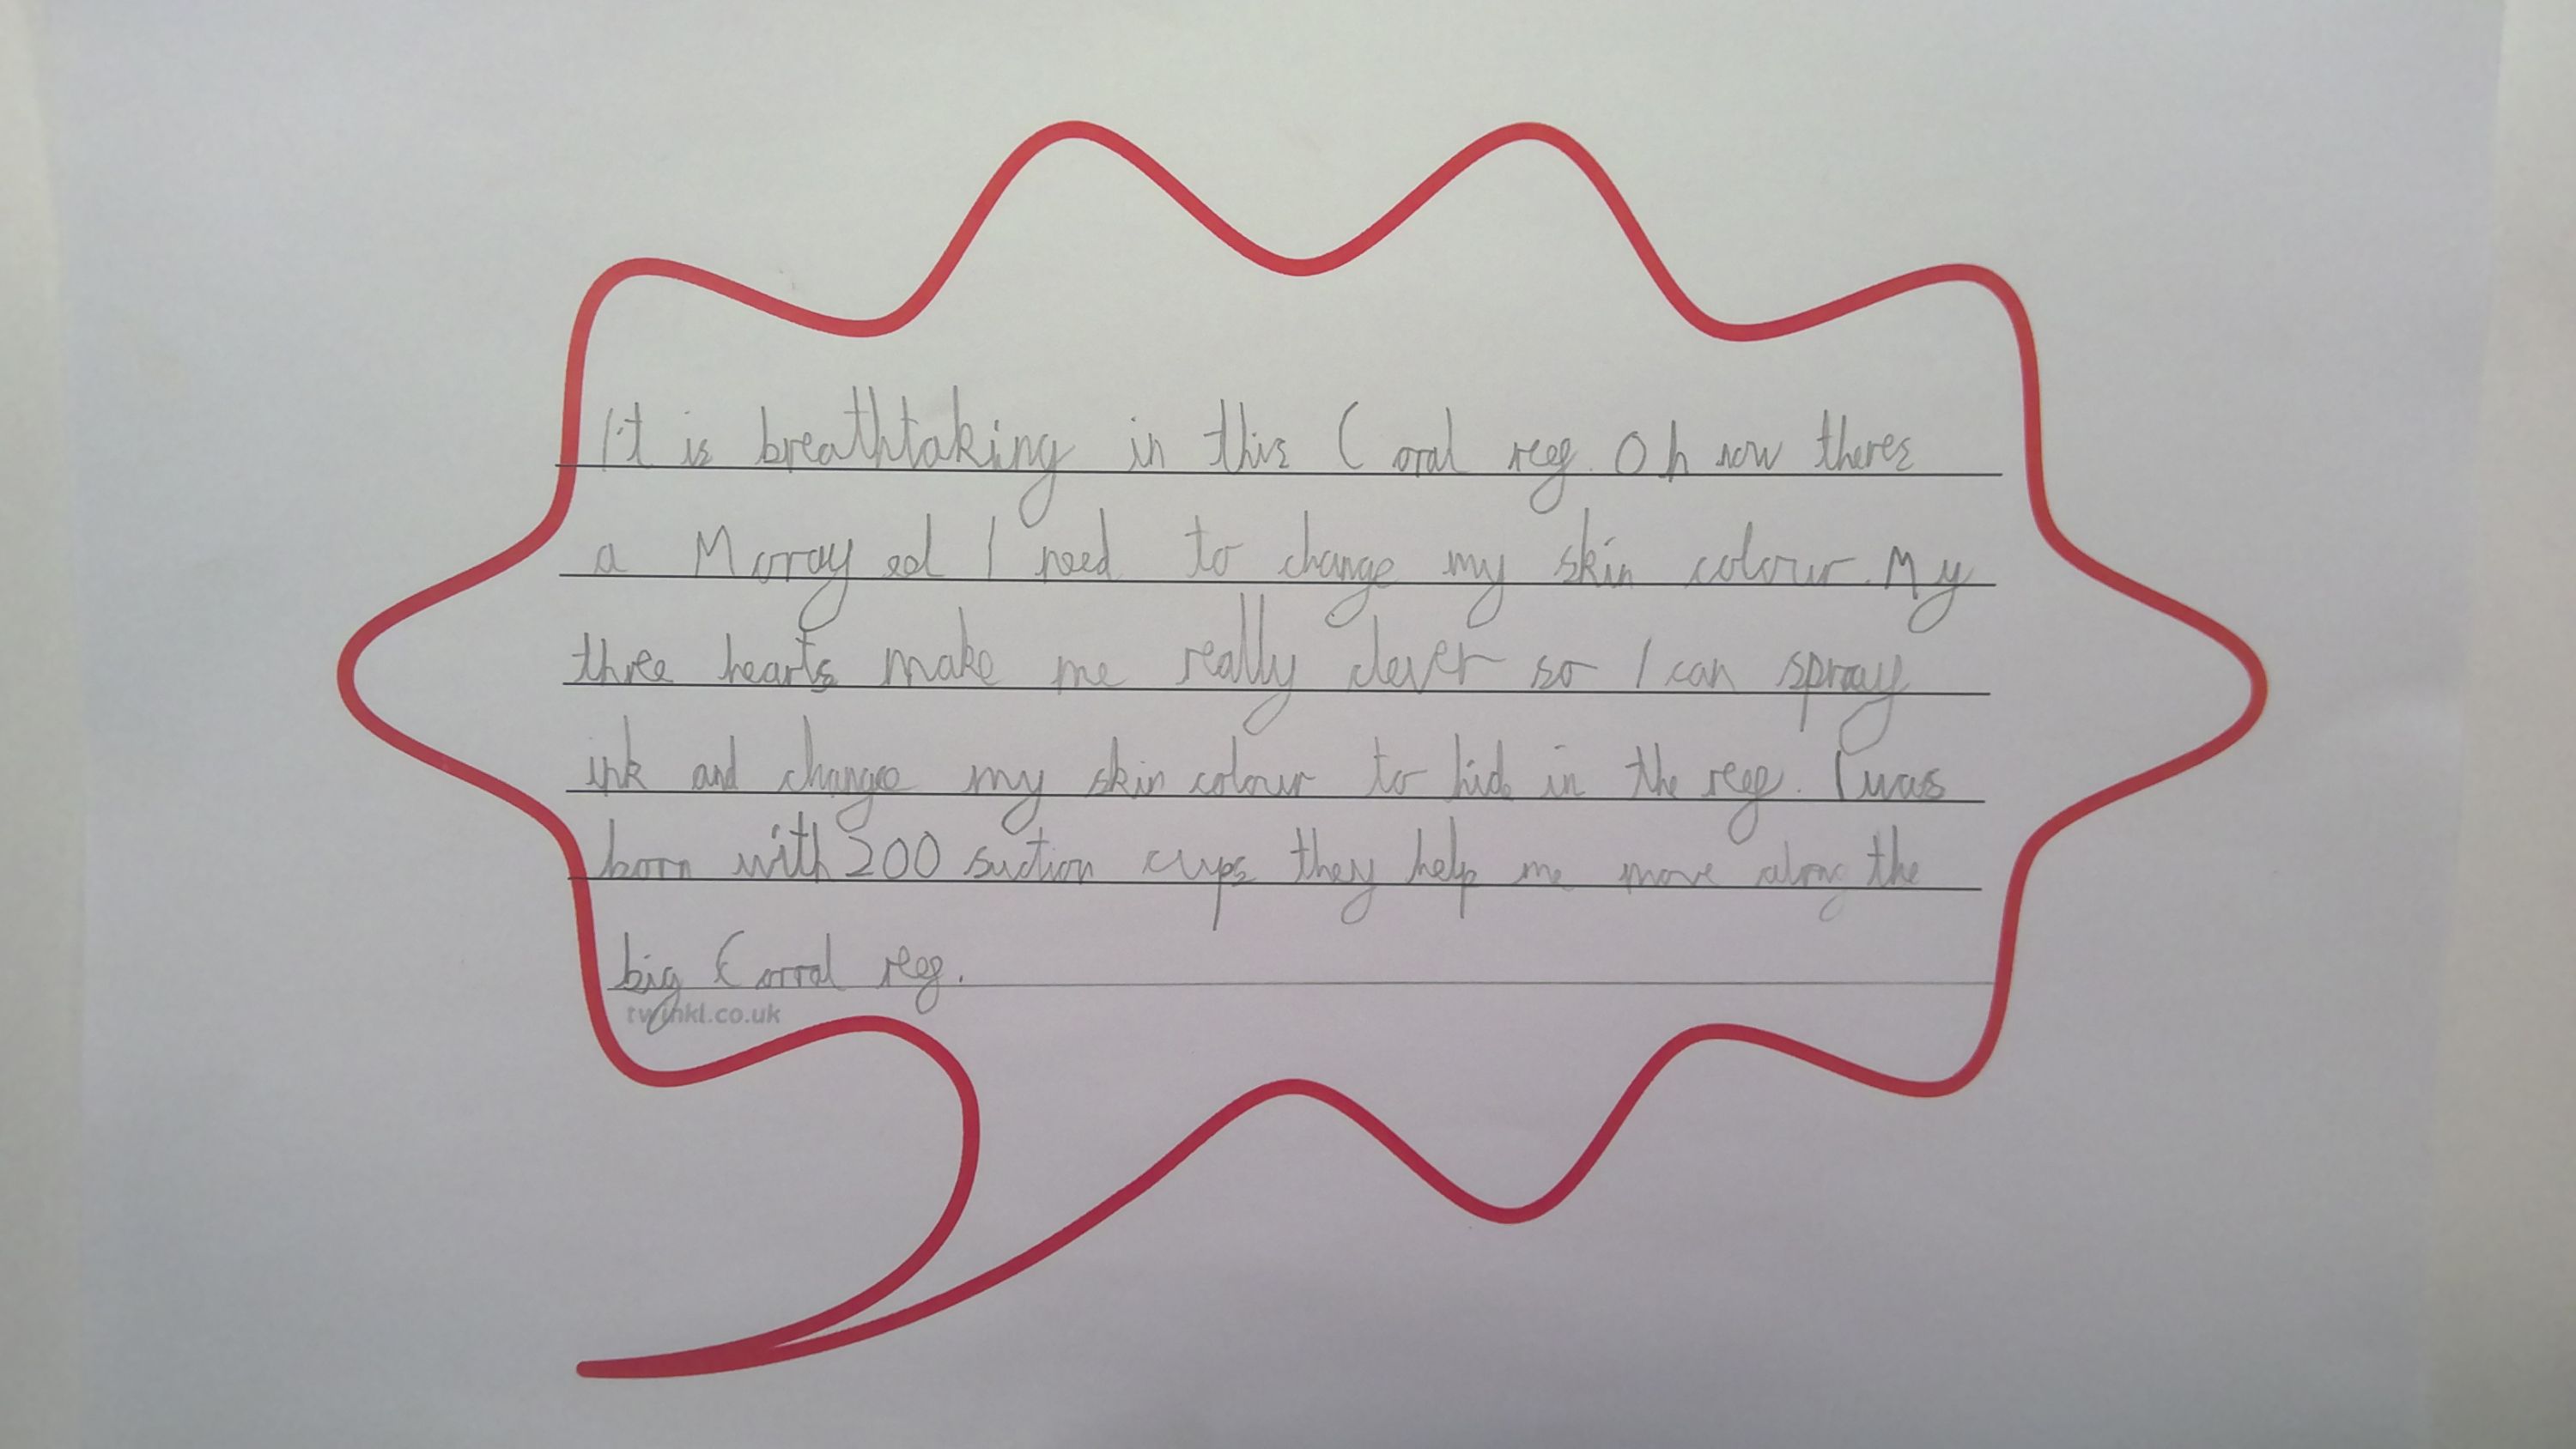 It is breathtaking in this Coral reef. Oh now theres
a Morray eel I need to change my skin colour. My
three hearts make me really clever so I can spray
ink and change my skin colour to hide in the reef. I was
born with 200 suction cups they help me move along the
big Corral reef.
twinkl.co.uk